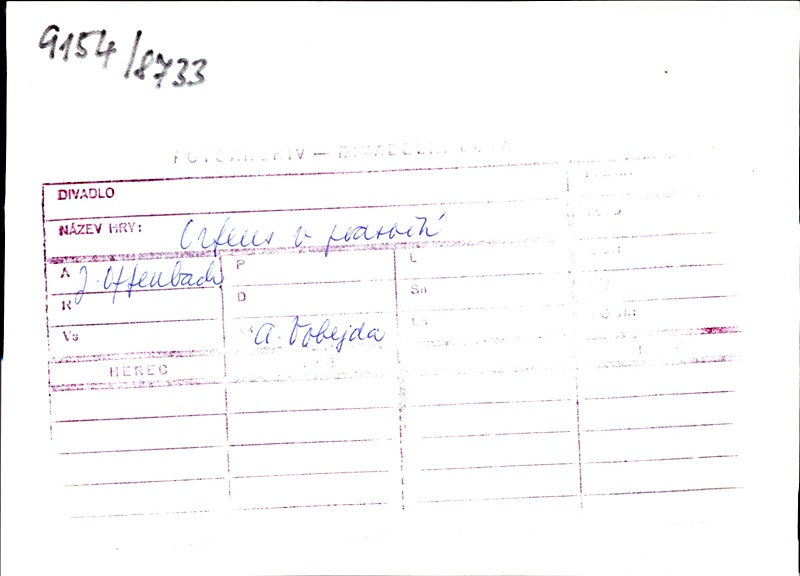 9154/8733
FOTOARCHIV — DIVADELNÍ
DIVADLO
NÁZEV HRY: Orfeus v podsvětí
A J. Offenbach P L
R D Sn
Vs A. Vobejda
HEREC